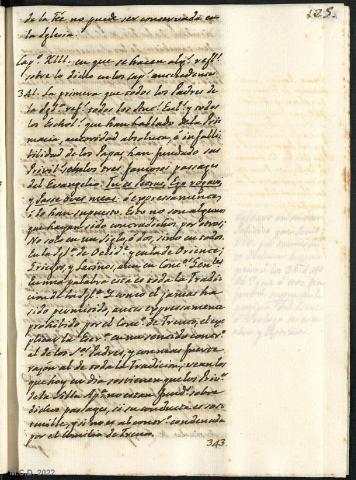 125.
de la Fee no puede ser conservada en
la Iglesia.
Cap.º XIII. en que se hacen alg.s refl.s
sobre lo dicho en los cap.s antecedentes
341. La primera que todos los Padres de
la Igl.a todos los y todos
los Schol.s que han hablado de la Pri-
macia, autoridad absoluta, è infali-
bilidad de los Papas, han fundado sus
sobre tres famosos passages
del Evangelio: Tu es Petrus, Ego rogavi,
y Pasce oves meas ò expresamente,
ò lo han supuesto. Esto no son algunos
que hayan sido contradichos por otros;
No solo en un siglo, ò dos, sino en todos.
En la Igl.a de Occid.te y en la de Oriente;
Griegos, y Latinos, aun en Conc.s Gen.les
en una palabra esta es toda la Tradi-
cion de la Igl.a Y como el jamas ha
sido permitido, antes expresamente
prohibido por el Conc.º de Trento, el ex-
plicar la Escr.a en un sentido contr.º
al de los S.tos Padres, y con mas fuerte
razon al de toda la Tradicion; vean los
que hoy en dia sostienen que los Priv.s
de la Silla Ap.ca no estan fund.s sobre
dichos passages, si su conducta es sos-
tenible, y si no es al contr.º condenada
por el Concilio de Trento.
343.
2022